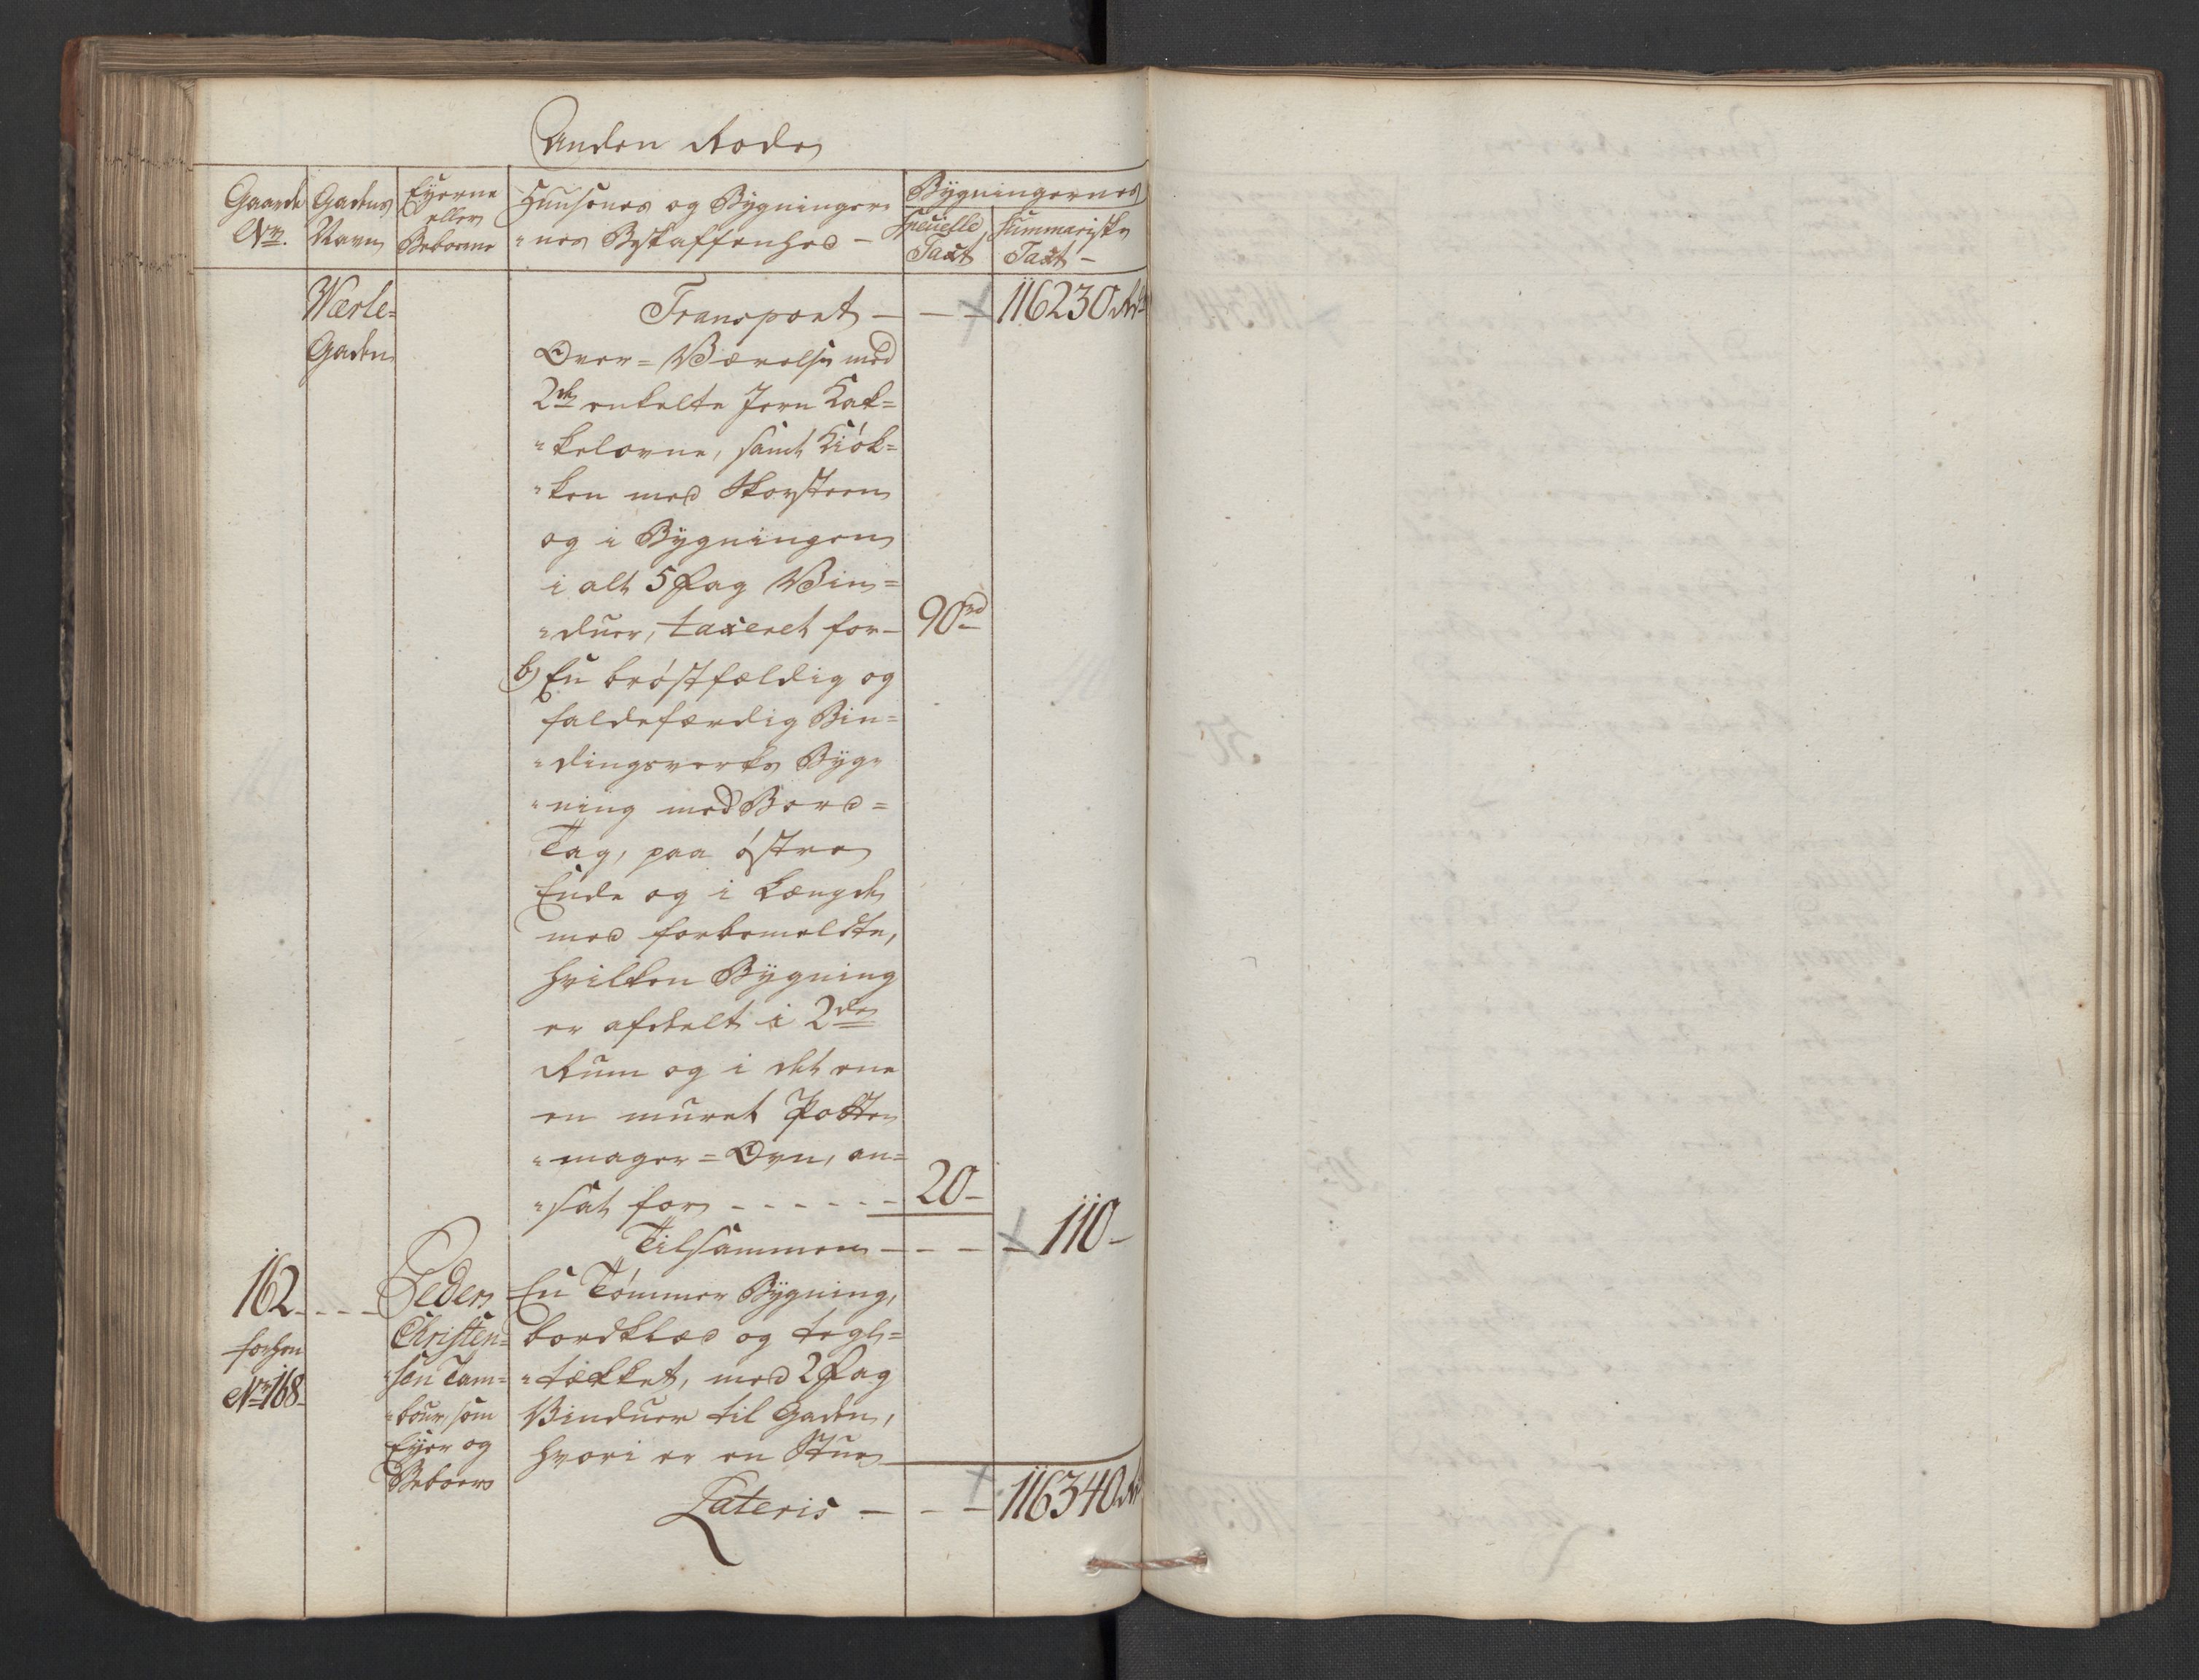 Anden Rode
Gaarde Nr.
Gadens Navn
Eyerne eller Beboerne
Huusenes og Bygninger-
-nes Beskaffenhed -
Bygningernes
Specielle Taxt
Summariske Taxt -
Værle=
Gaden
Transport - - - 116230 Rd
Over= Værelse med
2de enkelte Jern Kak=
"kelovne, samt Kiøk=
"ken med Skorsteen
og i Bygningen
i alt 5 Fag Vin=
"duer, taxeret for - 90rd
b) En brøstfældig og
faldefærdig Bin=
"dingsverks Byg"
"ning med Bord=
Tag, paa østre
Ende og i Længde
med forbemeldte,
hvilken Bygning
er afdelt i 2de
Rum og i det ene
en muret Potte-
"mager= Ovn, an=
"sat for - - - - - - 20 -
Tilsammen - - - - 110 -
162 - - - -
forhen
Nr 168
Peder
Christen=
"sen Tam=
"bour, som
Eyer og
Beboer
En Tømmer Bygning,
bordklæd og tegl=
"tækket, med 2 Fag
Vinduer til Gaden,
hvori er en Stue
Lateris - - - 116340 Rd